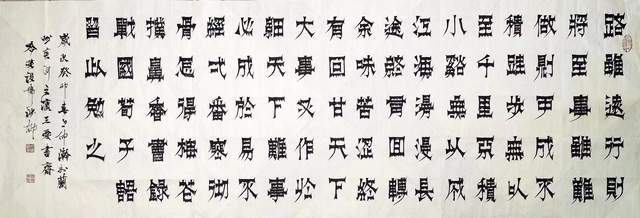 路雖遠行則
將至事雖難
做則必成不
積跬步無以
至千里不積
小谿無以成
江海漫漫長
途終肯回轉
余味苦澀終
有回甘天下
大事必作於
細天下難事
必成於易不
經弌番寒徹
骨怎得梅花
撲鼻香書錄
戰國荀子語
習以勉之
歲次癸卯春於蘭
州黃河之濱書齋